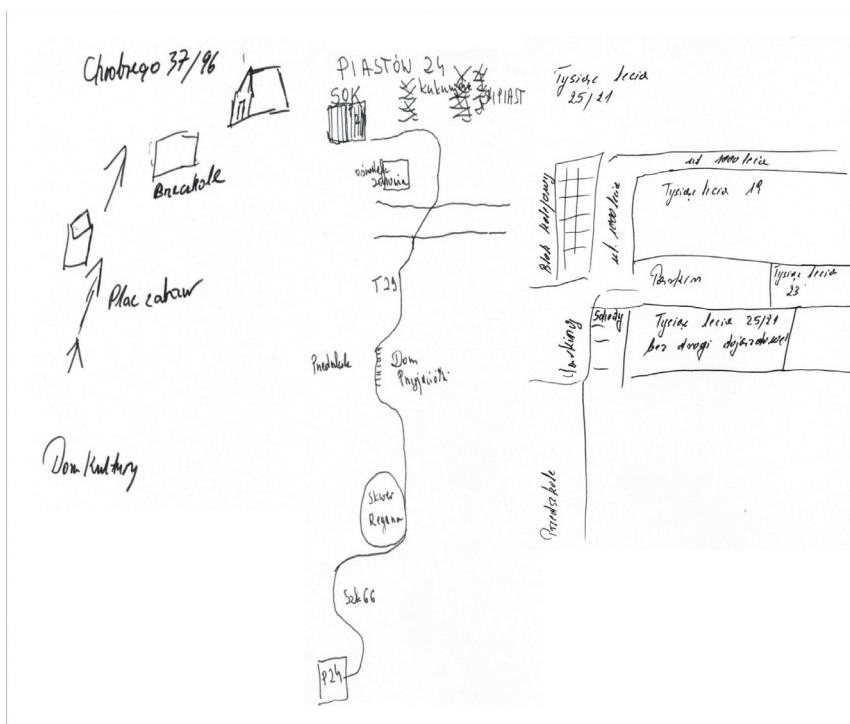 Chrobrego 37/96
Plac zabaw
Dom Kultury
PIASTÓW 24
SOK
PIAST
T29
Przedszkole
Dom
Przyjaciółki
Skwer
Regana
Szk 66
P24
Tysiąc lecia
25/21
ul 1000 lecia
Blok kolejowy
ul. 1000 lecia
Tysiąc lecia 19
Tysiąc lecia
23
Schody
Tysiąc lecia 25/21
bez drogi dojazdowej
Przedszkole